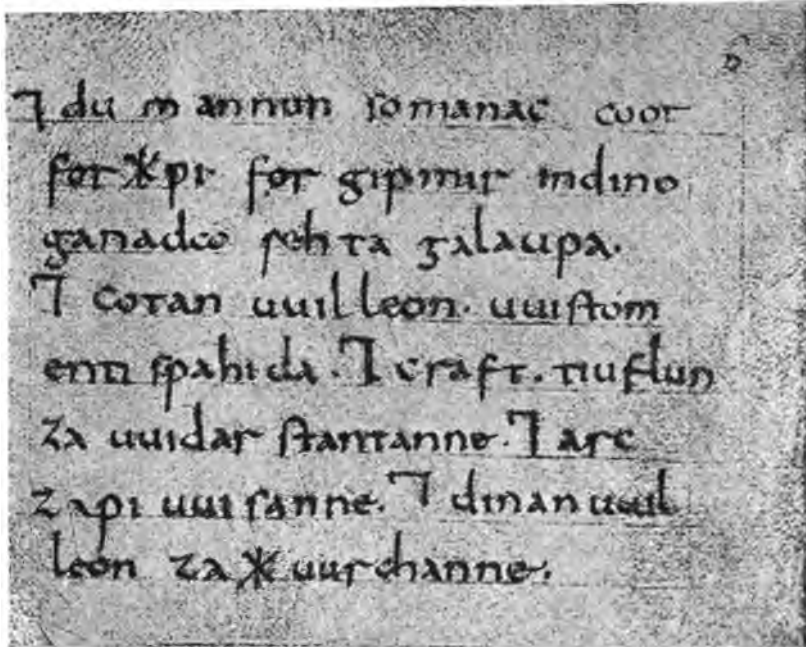 ⁊ du mannun so manac coot
for ᚼpi for gipmir indino
ganada rehta galaupa.
⁊ cotan uuilleon. uuistom
enti spahida. ⁊ craft. tiuflun
za uuidar stantanne. ⁊ arc
zapi uuisanne. ⁊ dinan uuil
leon za ᚼuurchanne.